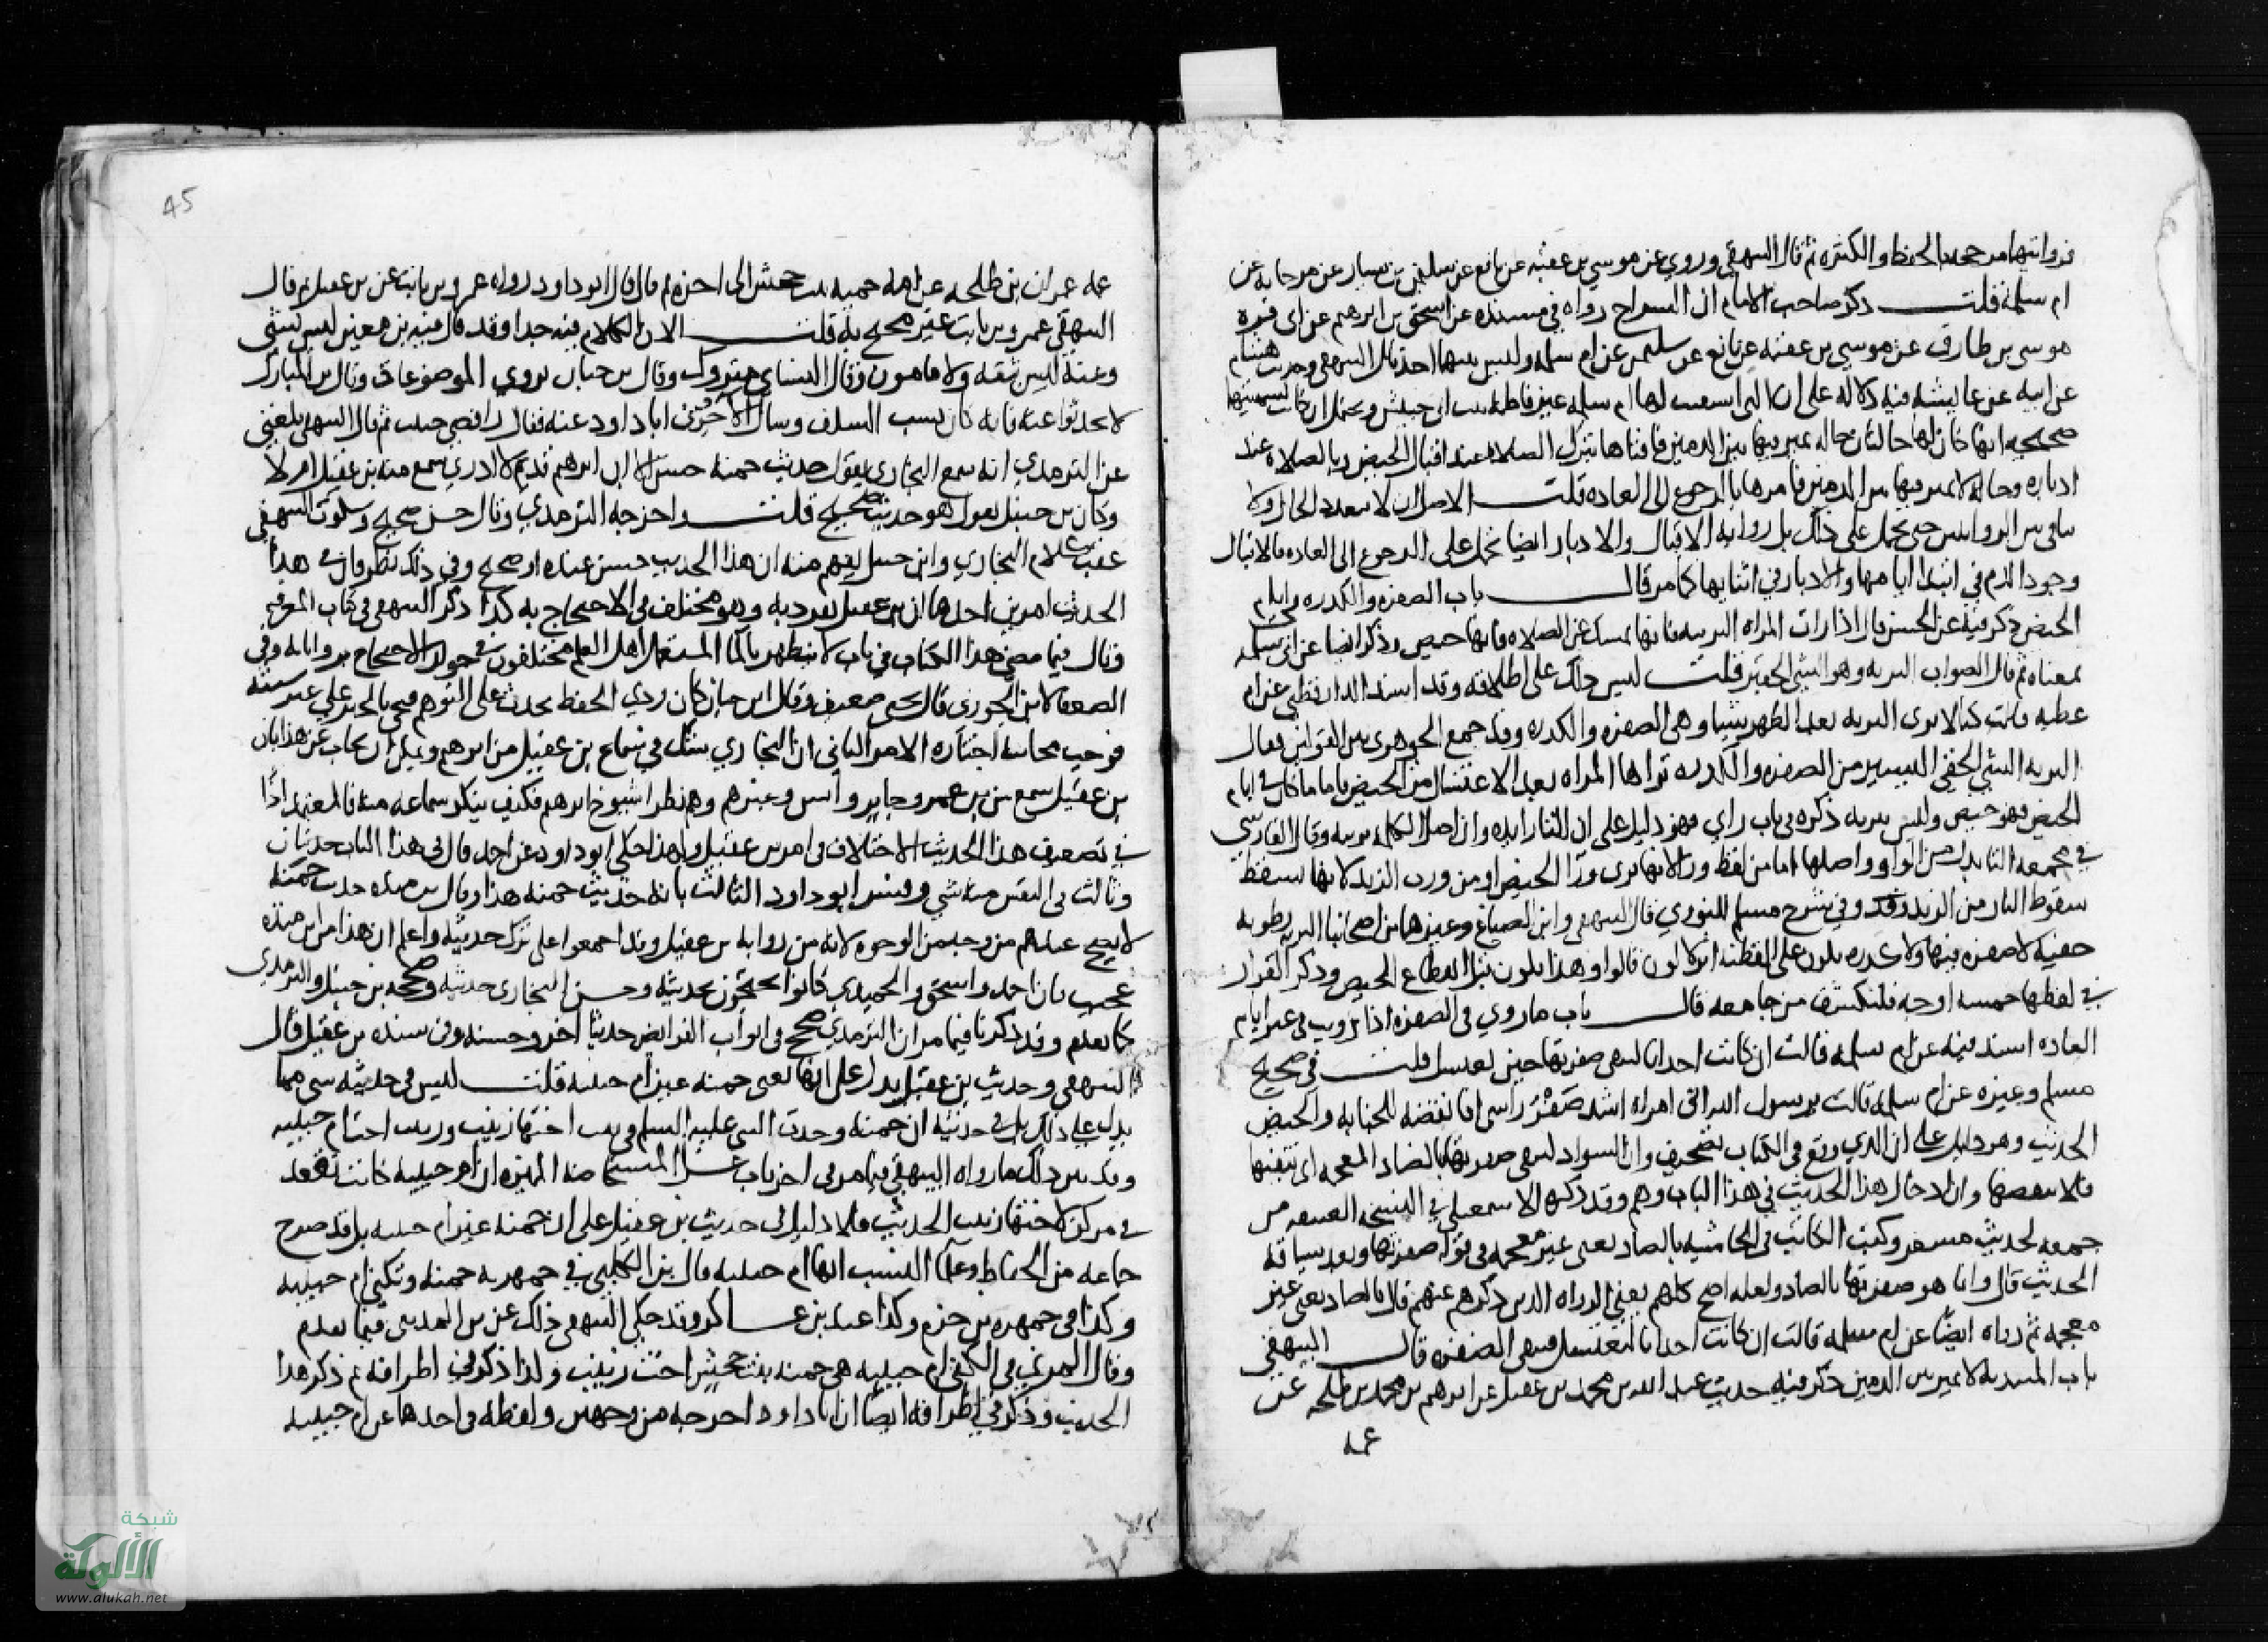 فروايتهما مرجحه بالحفظ والكثره ثم قال البيهقي وروي عن موسى بن عقبه عن نافع عن سليمن بن يسار عن مرجانه عن
ام سلمه قلت ذكر صاحب الامام ان السراج رواه في مسنده عن اسحق بن ابرهيم عن ابى قره
موسى بن طارق عن موسى بن عقبه عن نافع عن سليمن عن ام سلمه وليس بينهما احد قال البيهقي وحديث هشام
عن ابيه عن عايشه فيه دلاله على ان التي استفتت لها ام سلمه غير فاطمه بنت ابى حبيش ويحتمل ان كانت تسميتها
صحيحه انها كان لها حالتان حاله تميز فيها بين الدمين فافتاها بترك الصلاه عند اقبال الحيض وبالصلاه عند
ادباره وحاله لا تميز فيها بين الدمين فامرها بالرجوع الى العاده قلت الاصل ان لا يتعدد الحال ولا
تنافي بين الروايتين حتى يحمل على ذلك بل روايه الاقبال والادبار ايضا تحمل على الرجوع الى العاده فالاقبال
وجود الدم في ابتدا ايامها والادبار في انتهايها كما مر قال باب الصفره والكدره في ايام
الحيض ذكر فيه عن الحسن قال اذا رات المراه التريه فانها تمسك عن الصلاه فانها حيض وذكر ايضا عن ابى سلمه
بمعناه ثم قال الصواب التريه وهو الشي الحقير قلت ليس ذلك على اطلاقه وقد اسند الدارقطني عن ام
عطيه قالت كنا لا نرى التريه بعد الطهر شيا وهى الصفره والكدره وقد جمع الجوهرى بين القولين فقال
التريه الشي الخفي اليسير من الصفره والكدره تراها المراه بعد الاغتسال من الحيض فاما ما كان في ايام
الحيض فهو حيض وليس بتريه ذكره في باب راي فهو دليل على ان التا زايده وان اصل الكلمه تريه وقال الفارسي
في مجمعه التا بدل من الواو واصلها اما من لفظ ورا لانها ترى ورا الحيض او من ورى الزند لانها تسقط
سقوط النار من الزند وفي شرح مسلم للنووي قال البيهقي وابن الصباغ وغيرهما من اصحابنا التريه رطوبه
خفيه لا صفره فيها ولا كدره تكون على القطنه اثر لا لون قالوا وهذا يكون بعد انقطاع الحيض وذكر القزاز
في لفظها خمسه اوجه فلتكشف من جامعه قال باب ما روي في الصفره اذا رويت في غير ايام
العاده اسند فيه عن ام سلمه قالت ان كانت احدانا لتبقى صفرتها حين تغتسل قلت في صحيح
مسلم وغيره عن ام سلمه قالت يرسول الله انى امراه اشد ضفر راسى افانقضه للجنابه والحيض
الحديث وهو دليل على ان الذي وقع في الكتاب تصحيف وان السواد لتبقى ضفرتها بالضاد المعجمه اى تبقيها
فلا تنقضها وان ادخال هذا الحديث في هذا الباب وهم وقد ذكره الاسمعيلى في النسخه العتيقه من
جمعه لحديث مسعر وكتب الكاتب في الحاشيه بالصاد يعنى غير معجمه في قوله صفرتها وبعد سياقه
الحديث قال وانا هو صفرتها بالصاد ولعله اصح كلهم يعني الرواه الذين ذكرهم عنهم قال بالصاد يعنى غير
معجمه ثم رواه ايضا عن ام سلمه قالت ان كانت احدانا لتغتسل فتبقى الصفره قال البيهقي
باب المبتديه لا تميز بين الدمين ذكر فيه حديث عبد الله بن محمد بن عقيل عن ابرهيم بن محمد بن طلحه عن
عمه
45
عمه عمران بن طلحه عن امه حمنه بنت جحش الى اخره ثم قال قال ابو داود رواه عمرو بن ثابت عن بن عقيل ثم قال
البيهقي عمرو بن ثابت غير محتج به قلت الان الكلام فيه جدا وقد قال فيه بن معين ليس بشي
وعنه ليس بثقه ولا مامون وقال النساي متروك وقال بن حبان يروي الموضوعات وقال بن المبارك
لا تحدثوا عنه فانه كان يسب السلف وسال الآجُرى ابا داود عنه فقال رافضي خبيث ثم قال البيهقى بلغني
عن الترمذي انه سمع البخارى يقول حديث حمنه حسن الا ان ابرهيم قديم لا ادري سمع منه بن عقيل ام لا
وكان بن حنبل يقول هو حديث صحيح قلت واخرجه الترمذي وقال حسن صحيح وسكوت البيهقي
عقيب كلام البخاري وابن حنبل يفهم منه ان هذا الحديث حسن عنده او صحيح وفي ذلك نظر فان في هذا
الحديث امرين احدهما ان بن عقيل تفرد به وهو مختلف في الاحتجاج به كذا ذكر البيهقي في كتاب المعرفه
وقال فيما مضى هذا الكتاب في باب لا يتطهر بالما المستعمل اهل العلم مختلفون في جواز الاحتجاج برواياته وفي
الضعفا لابن الجوزى قال يحيى ضعيف وقال ابن حبان كان ردي الحفظ يحدث على التوهم فيجي بالخبر على غير سننه
فوجب مجانبه اخباره الامر الثاني ان البخاري شك في سماع بن عقيل من ابرهيم ويمكن ان يجاب عن هذا بان
بن عقيل سمع من بن عمر وجابر وانس وغيرهم وهم نظرا شيوخ ابرهيم فكيف ينكر سماعه منه فالمعتمد اذًا
في تضعيف هذا الحديث الاختلاف في امر بن عقيل ولهذا حكى ابو داود عن احمد قال في هذا الباب حديثان
وثالث في النفس منه شي وفسر ابو داود الثالث بانه حديث حمنه هذا وقال بن منده حديث حمنه
لا يصح عندهم من وجه من الوجوه لانه من روايه بن عقيل وقد اجمعوا على ترك حديثه واعلم ان هذا من ابن منده
عجيب فان احمد واسحق والحميدي كانوا يحتجون بحديثه وحسن البخارى حديثه وصححه بن حنبل والترمذي
كما تقدم وقد ذكرنا فيما مر ان الترمذي صحح في ابواب الفرايض حديثا اخر وحسنه وفى سنده بن عقيل قال
البيهقى وحديث بن عقيل يدل على انها يعنى حمنه غير ام حبيبه قلت ليس في حديثه شى مما
يدل على ذلك بل في حديثه ان حمنه وجدت النبي عليه السلم في بيت اختها زينب وزينب اخت ام حبيبه
وقد بين ذلك ما رواه البيهقي فيما مر في اخر باب غسل المستحاضه المميزه ان ام حبيبه كانت تقعد
في مركن لاختها زينب الحديث فلا دليل في حديث بن عقيل على ان حمنه غير ام حبيبه بل قد صرح
جماعه من الحفاظ وعلما النسب انها ام حبيبه قال بن الكلبي في جمهرته حمنه وتكنى ام حبيبه
وكذا في جمهره بن حزم وكذا عند بن عساكر وقد حكى البيهقى ذلك عن بن المدينى فيما تقدم
وقال المزي في الكنى ام حبيبه هى حمنه بنت جحش اخت زينب ولذا ذكر في اطرافه ثم ذكر هذا
الحديث وذكر في اطرافه ايضًا ان ابا داود اخرجه من وجهين ولفظه في احدهما عن ام حبيبه
شبكة
الألوكة
www.alukah.net